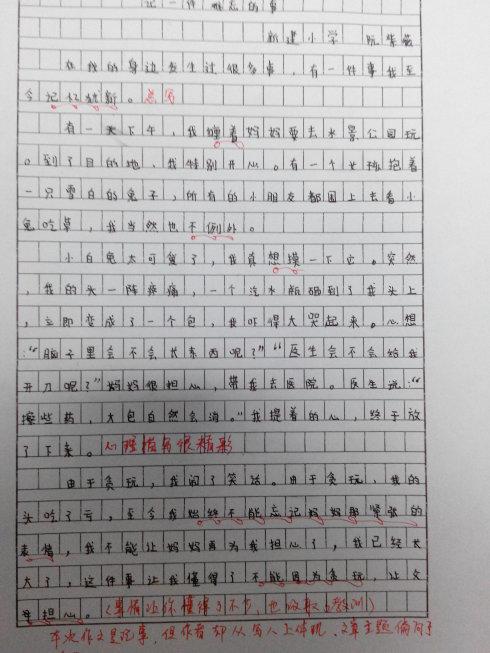 记一件难忘的事
新建小学 阮紫薇
在我的身边发生过很多事，有一件事我至
今记忆犹新。总写
有一天下午，我缠着妈妈要去水景公园玩
。到了目的地，我特别开心。有一个女孩抱着
一只雪白的兔子，所有的小朋友都围上去看小
兔吃草，我当然也不例外。
小白兔太可爱了，我真想摸一下它。突然
，我的头一阵疼痛，一个汽水瓶砸到了我头上
，立即变成了一个包，我吓得大哭起来。心想
：“脑子里会不会长东西呢？”“医生会不会给我
开刀呢？”妈妈很担心，带我去医院。医生说：“
擦些药，大包自然会消。”我提着的心，终于放
了下来。心理描写很精彩
由于贪玩，我闹了笑话。由于贪玩，我的
头吃了亏，至今我始终不能忘记妈妈那紧张的
表情，我不能让妈妈再为我担心了，我已经长
大了，这件事让我懂得了不能因为贪玩，让父
母担心。（事情让你懂得了不少，也吸取了教训）
本次作文是记事，但作者却从写人上体现，文章主题偏向了